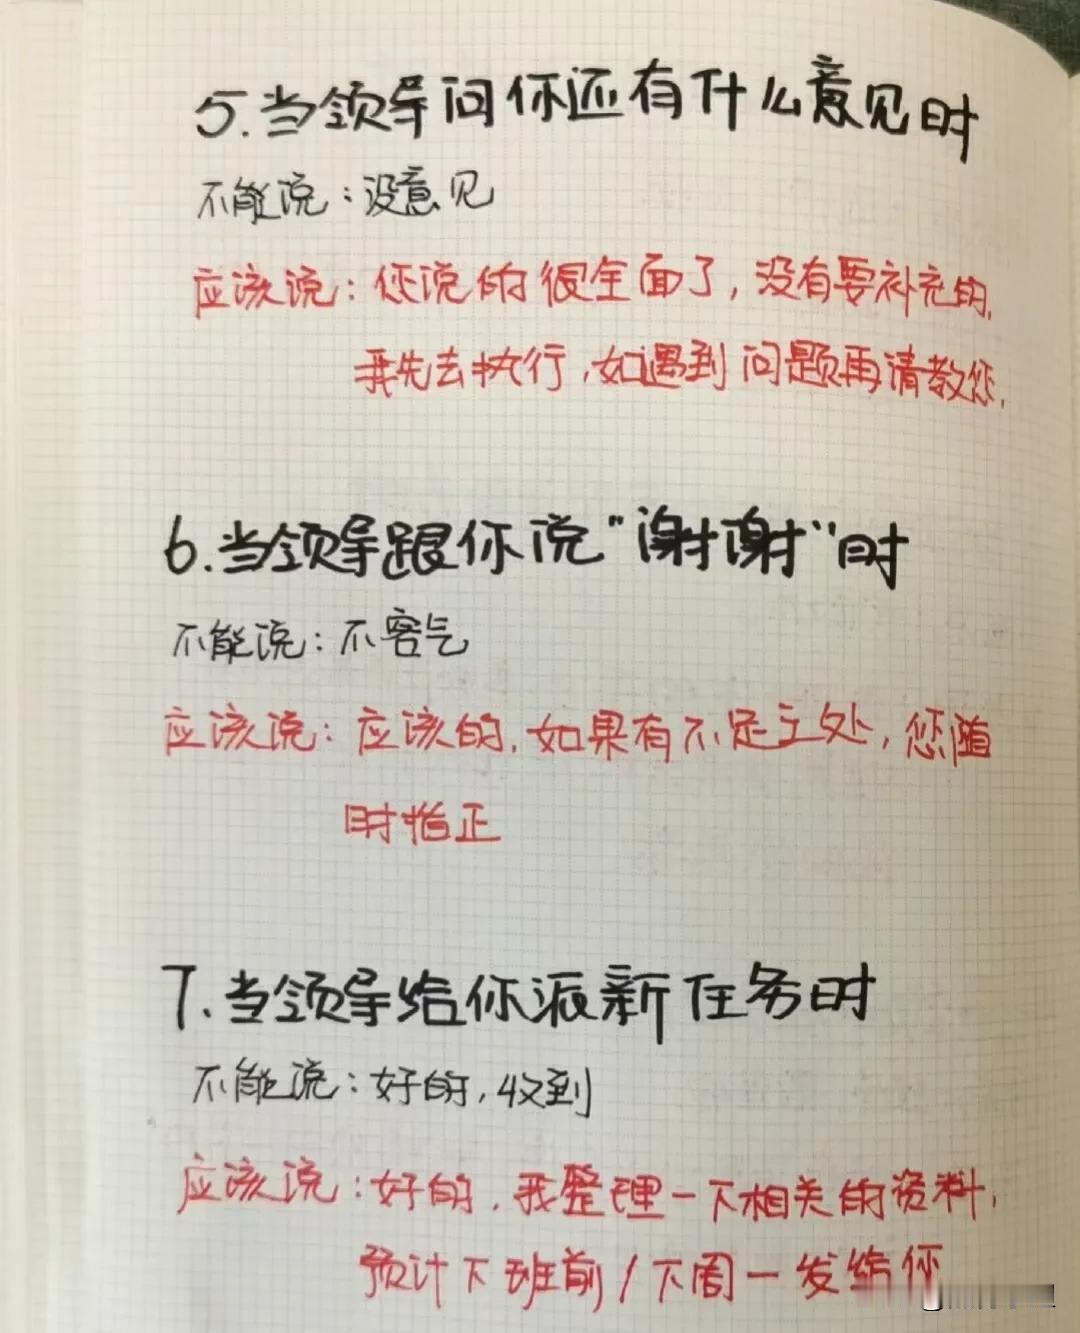 5.当领导问你还有什么意见时
不能说：没意见
应该说：您说的很全面了，没有要补充的，
我先去执行，如遇到问题再请教您.
6.当领导跟你说“谢谢”时
不能说：不客气
应该说：应该的，如果有不足之处，您随
时指正
7.当领导给你派新任务时
不能说：好的，收到
应该说：好的，我整理一下相关的资料，
预计下班前/下周一发给你